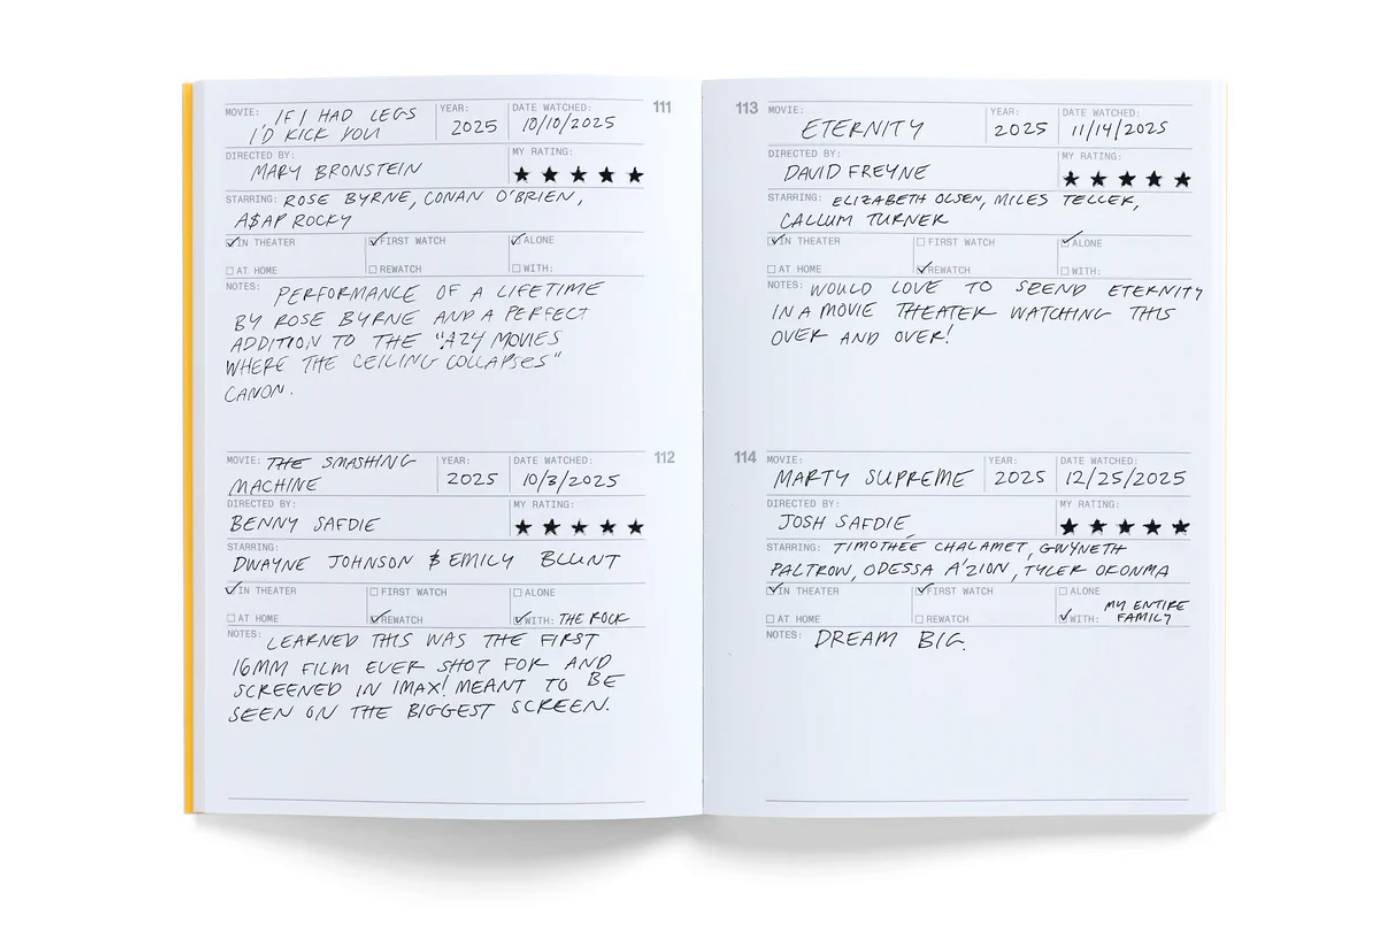 MOVIE: IF I HAD LEGS YEAR: DATE WATCHED: 111
I'D KICK YOU 2025 10/10/2025
DIRECTED BY: MY RATING:
MARY BRONSTEIN ★ ★ ★ ★ ★
STARRING: ROSE BYRNE, CONAN O'BRIEN,
A$AP ROCKY
IN THEATER FIRST WATCH ALONE
AT HOME REWATCH WITH:
NOTES: PERFORMANCE OF A LIFETIME
BY ROSE BYRNE AND A PERFECT
ADDITION TO THE "A24 MOVIES
WHERE THE CEILING COLLAPSES"
CANON.
MOVIE: THE SMASHING YEAR: DATE WATCHED: 112
MACHINE 2025 10/3/2025
DIRECTED BY: MY RATING:
BENNY SAFDIE ★ ★ ★ ★ ★
STARRING:
DWAYNE JOHNSON & EMILY BLUNT
IN THEATER FIRST WATCH ALONE
AT HOME REWATCH WITH: THE ROCK
NOTES: LEARNED THIS WAS THE FIRST
16MM FILM EVER SHOT FOR AND
SCREENED IN IMAX! MEANT TO BE
SEEN ON THE BIGGEST SCREEN.
113 MOVIE: YEAR: DATE WATCHED:
ETERNITY 2025 11/14/2025
DIRECTED BY: MY RATING:
DAVID FREYNE ★ ★ ★ ★ ★
STARRING: ELIZABETH OLSEN, MILES TELLER,
CALLUM TURNER
IN THEATER FIRST WATCH ALONE
AT HOME REWATCH WITH:
NOTES: WOULD LOVE TO SPEND ETERNITY
IN A MOVIE THEATER WATCHING THIS
OVER AND OVER!
114 MOVIE: YEAR: DATE WATCHED:
MARTY SUPREME 2025 12/25/2025
DIRECTED BY: MY RATING:
JOSH SAFDIE ★ ★ ★ ★ ★
STARRING: TIMOTHÉE CHALAMET, GWYNETH
PALTROW, ODESSA A'ZION, TYLER OKONMA
IN THEATER FIRST WATCH ALONE
AT HOME REWATCH WITH: MY ENTIRE
FAMILY
NOTES: DREAM BIG.